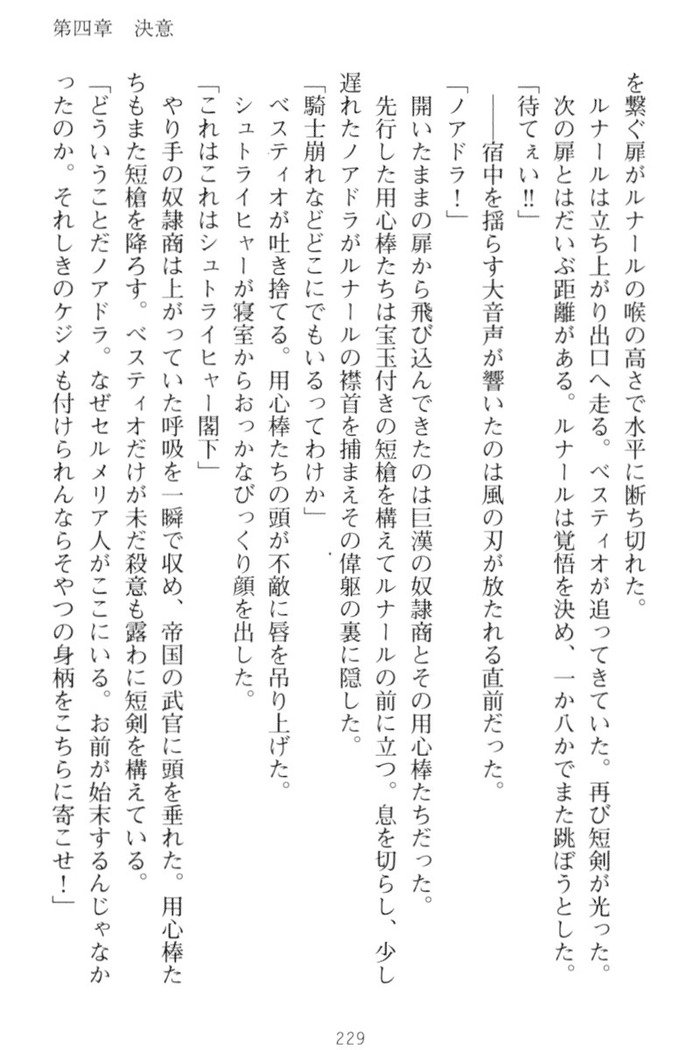 第四章　決意
を繋ぐ扉がルナールの喉の高さで水平に断ち切れた。
　ルナールは立ち上がり出口へ走る。ベスティオが追ってきていた。再び短剣が光った。
次の扉とはだいぶ距離がある。ルナールは覚悟を決め、一か八かでまた跳ぼうとした。
「待てぇい!!」
　――宿中を揺らす大音声が響いたのは風の刃が放たれる直前だった。
「ノアドラ！」
　開いたままの扉から飛び込んできたのは巨漢の奴隷商とその用心棒たちだった。
　先行した用心棒たちは宝玉付きの短槍を構えてルナールの前に立つ。息を切らし、少し
遅れたノアドラがルナールの襟首を捕まえその偉躯の裏に隠した。
「騎士崩れなどどこにでもいるってわけか」
　ベスティオが吐き捨てる。用心棒たちの頭が不敵に唇を吊り上げた。
　シュトライヒャーが寝室からおっかなびっくり顔を出した。
「これはこれはシュトライヒャー閣下」
　やり手の奴隷商は上がっていた呼吸を一瞬で収め、帝国の武官に頭を垂れた。用心棒た
ちもまた短槍を降ろす。ベスティオだけが未だ殺意も露わに短剣を構えている。
「どういうことだノアドラ。なぜセルメリア人がここにいる。お前が始末するんじゃなか
ったのか。それしきのケジメも付けられんならそやつの身柄をこちらに寄こせ！」
229